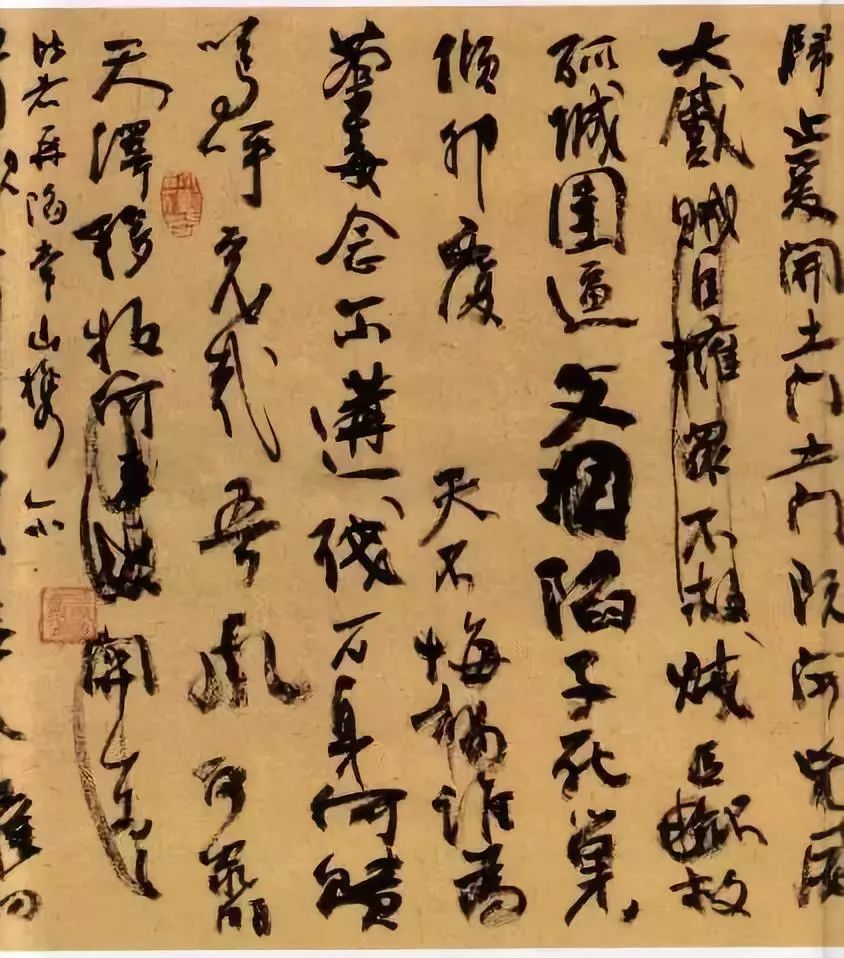 歸止爰開土門土門既開兇威
大蹙賊臣擁眾不救賊臣擁眾不救
孤城圍逼父擒陷子死巢
傾卵覆 天不悔禍誰為
荼毒念爾遘殘百身何贖
嗚呼哀哉吾承
天澤移牧河東近河關
泉明
比者再陷常山攜爾